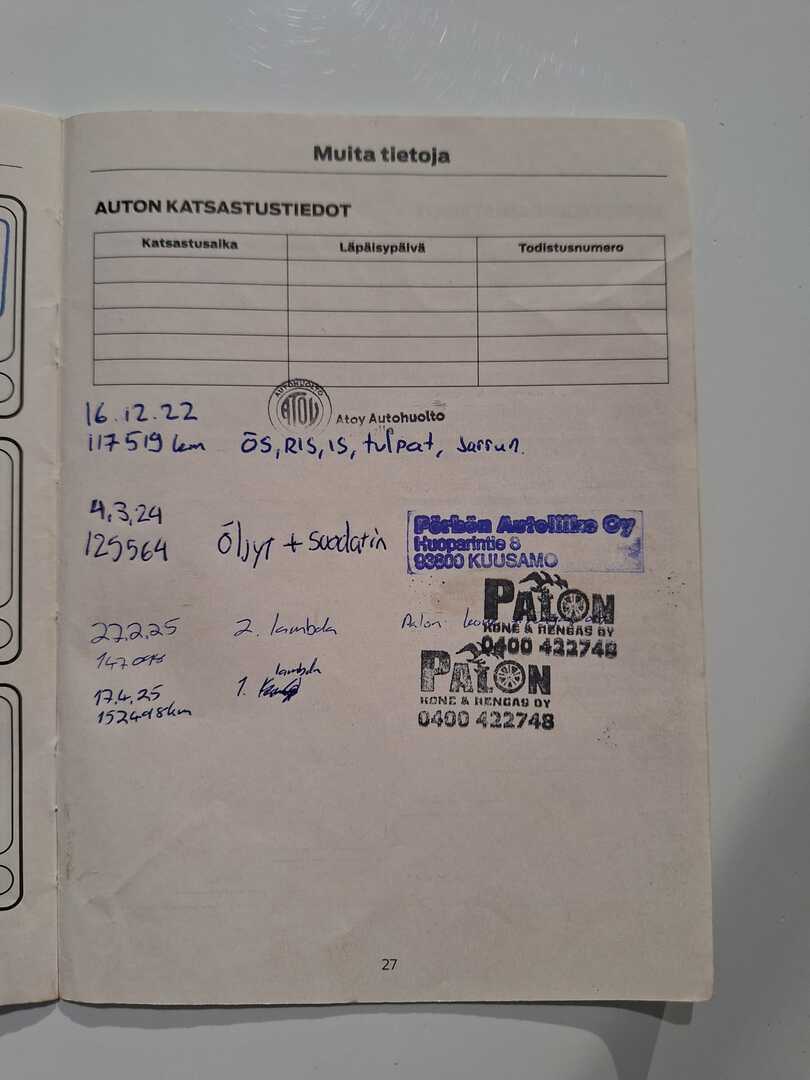 Muita tietoja
AUTON KATSASTUSTIEDOT
Katsastusaika Läpäisypäivä Todistusnumero
16.12.22
AUTOHUOLTO
ATOY
Atoy Autohuolto
117519 km ÖS, RIS, IS, tulpat, Jarrun.
4.3.24
125564 Öljyt + Suodatin
Pörhön Autoliike Oy
Huoparintie 8
93600 KUUSAMO
27.2.25 2. lambda Palon
PALON
KONE & RENGAS OY
0400 422748
lambda
17.4.25 1.
152498km
PALON
KONE & RENGAS OY
0400 422748
27